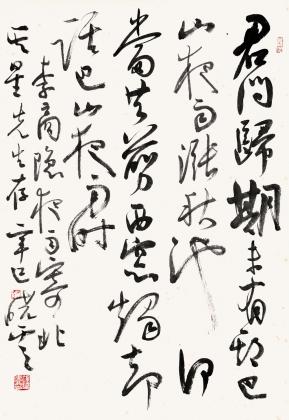 君問歸期未有期巴
山夜雨漲秋池何
當共剪西窗燭却
話巴山夜雨時
李商隐夜雨寄北
星先生存辛巳曉雲